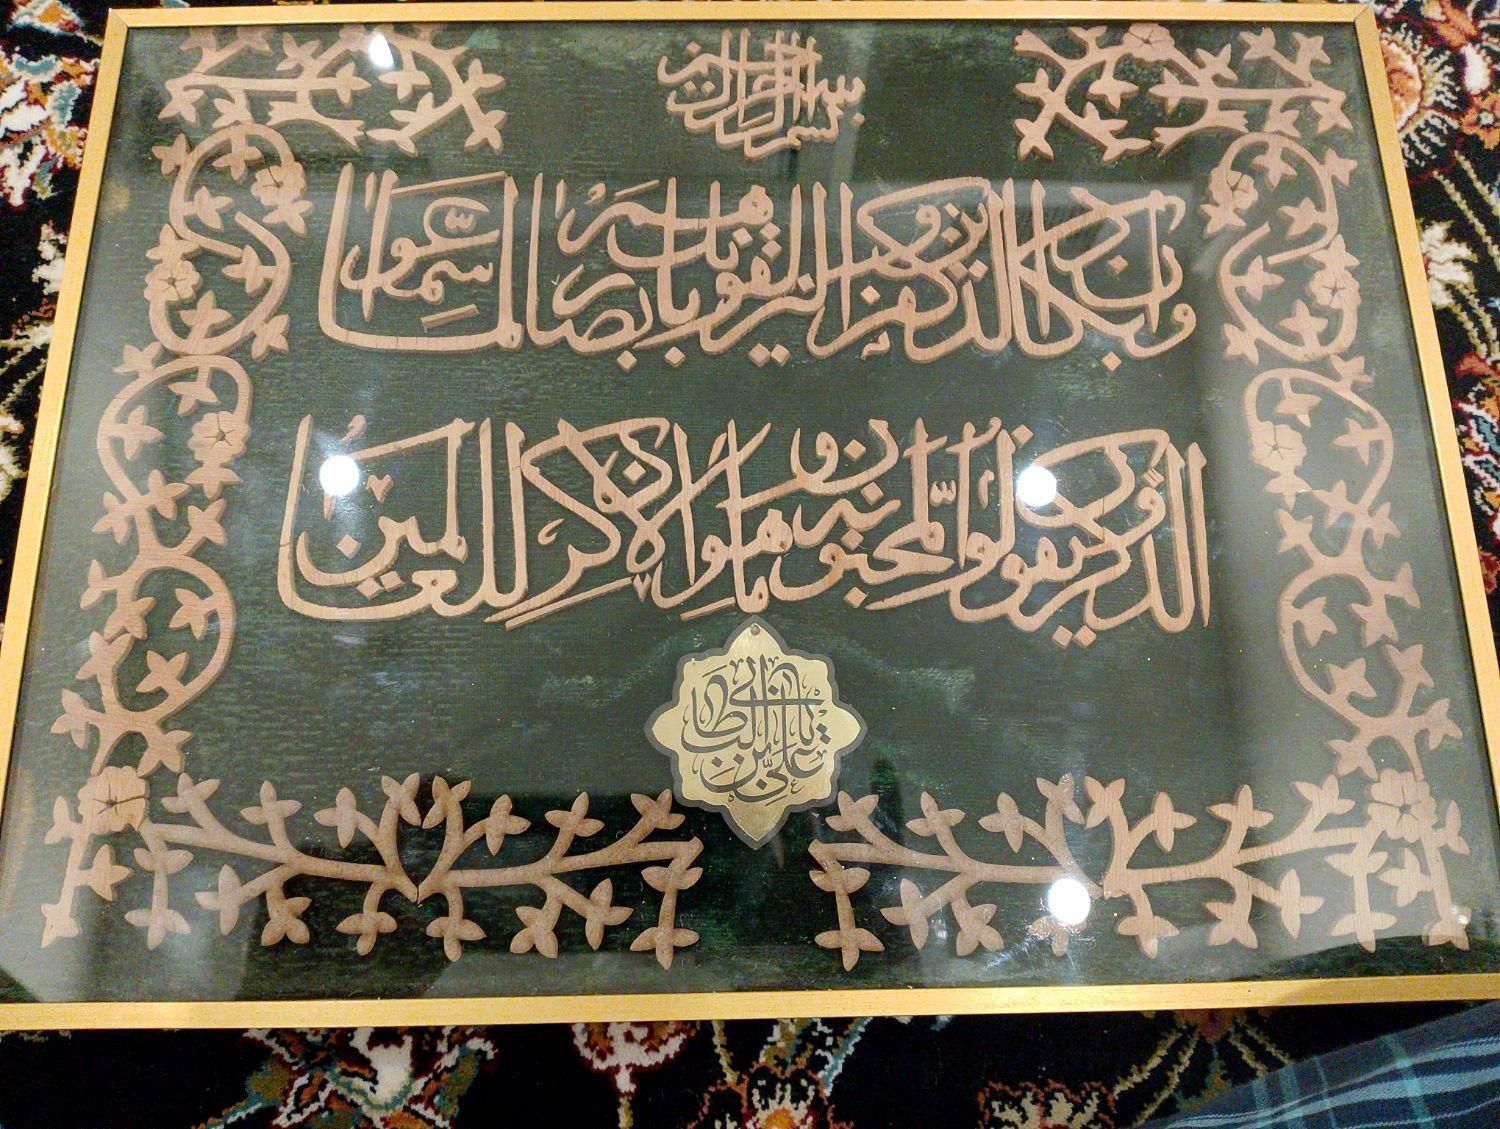 بسم الله الرحمن الرحیم
وإن یکاد الذین کفروا لیزلقونک بأبصارهم لما سمعوا
الذکر ویقولون إنه لمجنون وما هو إلا ذکر للعالمین
یا علی بن ابی طالب